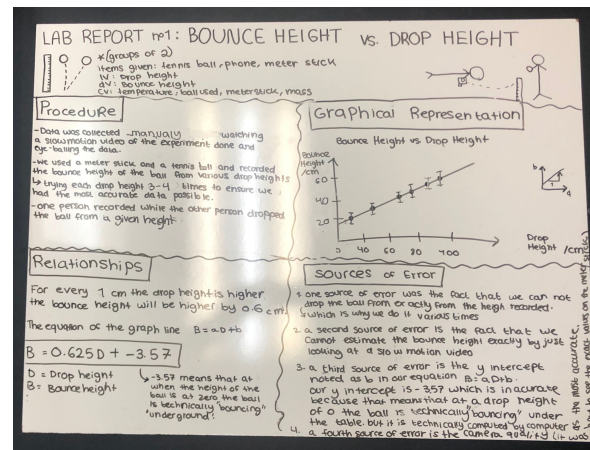 LAB REPORT nº1: BOUNCE HEIGHT vs. DROP HEIGHT
*(groups of 2)
items given: tennis ball, phone, meter stick
IV: Drop height
dV: Bounce height
CV: temperature, ball used, meterstick, mass
Procedure
-Data was collected manualy watching
a slowmotion video of the experiment done and
eye-balling the data.
-we used a meter stick and a tennis ball and recorded
the bounce height of the ball from various drop heights
↳ trying each drop height 3-4 times to ensure we
had the most accurate data possible.
-one person recorded while the other person dropped
the ball from a given height.
Graphical Representation
Bounce Height vs. Drop Height
Bounce
Height
/cm
60
40
20
0 40 60 80 100
Drop
Height /cm
b
1
a
Relationships
For every 1 cm the drop height is higher
the bounce height will be higher by 0.6 cm.
The equation of the graph line B=aD+b
B = 0.625D + -3.57
D = Drop height
B = Bounce height
↳ -3.57 means that at
when the height of the
ball is at zero the ball
is technically "bouncing"
"underground".
Sources of Error
1. one source of error was the fact that we can not
drop the ball from exactly from the heigh recorded.
↳ which is why we do it various times
2. a second source of error is the fact that we
cannot estimate the bounce height exactly by just
looking at a slow motion video
3. a third source of error is the y intercept
noted as b in our equation B=aD+b.
our y intercept is -3.57 which is inacurate
because that means that at a drop height
of 0 the ball is technically "bouncing" under
the table. but it is technically computed by computer
4. a fourth source of error is the camera quality (it was
as the most accurate.
to see the exact values on the meter stick.)